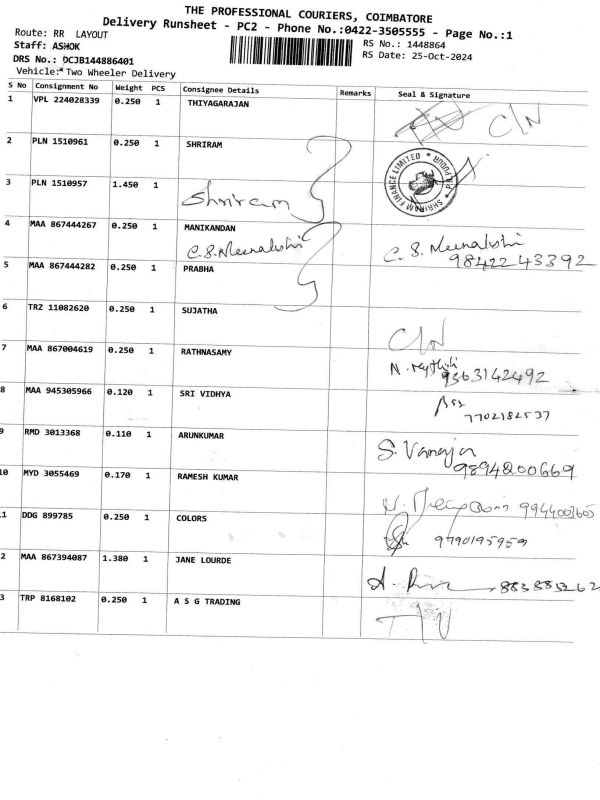 THE PROFESSIONAL COURIERS, COIMBATORE
Delivery Runsheet - PC2 - Phone No.:0422-3505555 - Page No.:1
Route: RR LAYOUT
RS No.: 1448864
Staff: ASHOK
RS Date: 25-Oct-2024
DRS No.: DCJB144886401
Vehicle: Two Wheeler Delivery
S No Consignment No Weight PCS Consignee Details Remarks Seal & Signature
1 VPL 224028339 0.250 1 THIYAGARAJAN
C/N
2 PLN 1510961 0.250 1 SHRIRAM
SHRIRAM FINANCE LIMITED
3 PLN 1510957 1.450 1
Shriram
4 MAA 867444267 0.250 1 MANIKANDAN
C.S.Meenakshi C. S. Meenakshi
98422 43392
5 MAA 867444282 0.250 1 PRABHA
6 TRZ 11082620 0.250 1 SUJATHA
C/N
7 MAA 867004619 0.250 1 RATHNASAMY
N.
9363142492
8 MAA 945305966 0.120 1 SRI VIDHYA
7702182537
9 RMD 3013368 0.110 1 ARUNKUMAR
S. Vanaja
9894200669
10 MYD 3055469 0.170 1 RAMESH KUMAR
9944003605
11 DDG 899785 0.250 1 COLORS
9790195959
12 MAA 867394087 1.380 1 JANE LOURDE
883885262
13 TRP 8168102 0.250 1 A S G TRADING